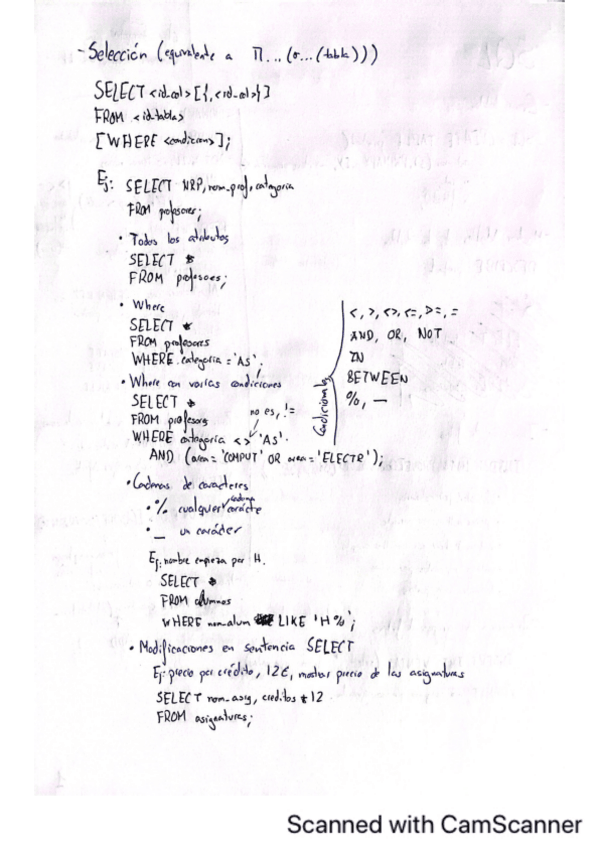 - Selección (equivalente a Π...(σ...(tabla)))
SELECT <id_col> [{,<id_col>}]
FROM <id_tabla>
[WHERE <condicion>];
Ej: SELECT NRP, nom_prof, categoria
FROM profesores;
• Todos los atributos
SELECT *
FROM profesores;
• Where
SELECT *
FROM profesores
WHERE categoria = 'AS';
• Where con varias condiciones
SELECT *
FROM profesores
no es, !=
WHERE categoria <> 'AS'.
AND (area = 'COMPUT' OR area = 'ELECTR');
Condicionales
<, >, <>, <=, >=, =
AND, OR, NOT
IN
BETWEEN
%, _
• Cadenas de caracteres
• % cualquier cadena
• _ un carácter
Ej: nombre empieza por H.
SELECT *
FROM alumnos
WHERE nom_alum LIKE 'H%;
• Modificaciones en sentencia SELECT
Ej: precio por crédito, 12€, mostrar precio de las asignaturas
SELECT nom_asig, creditos * 12
FROM asignaturas;
Scanned with CamScanner